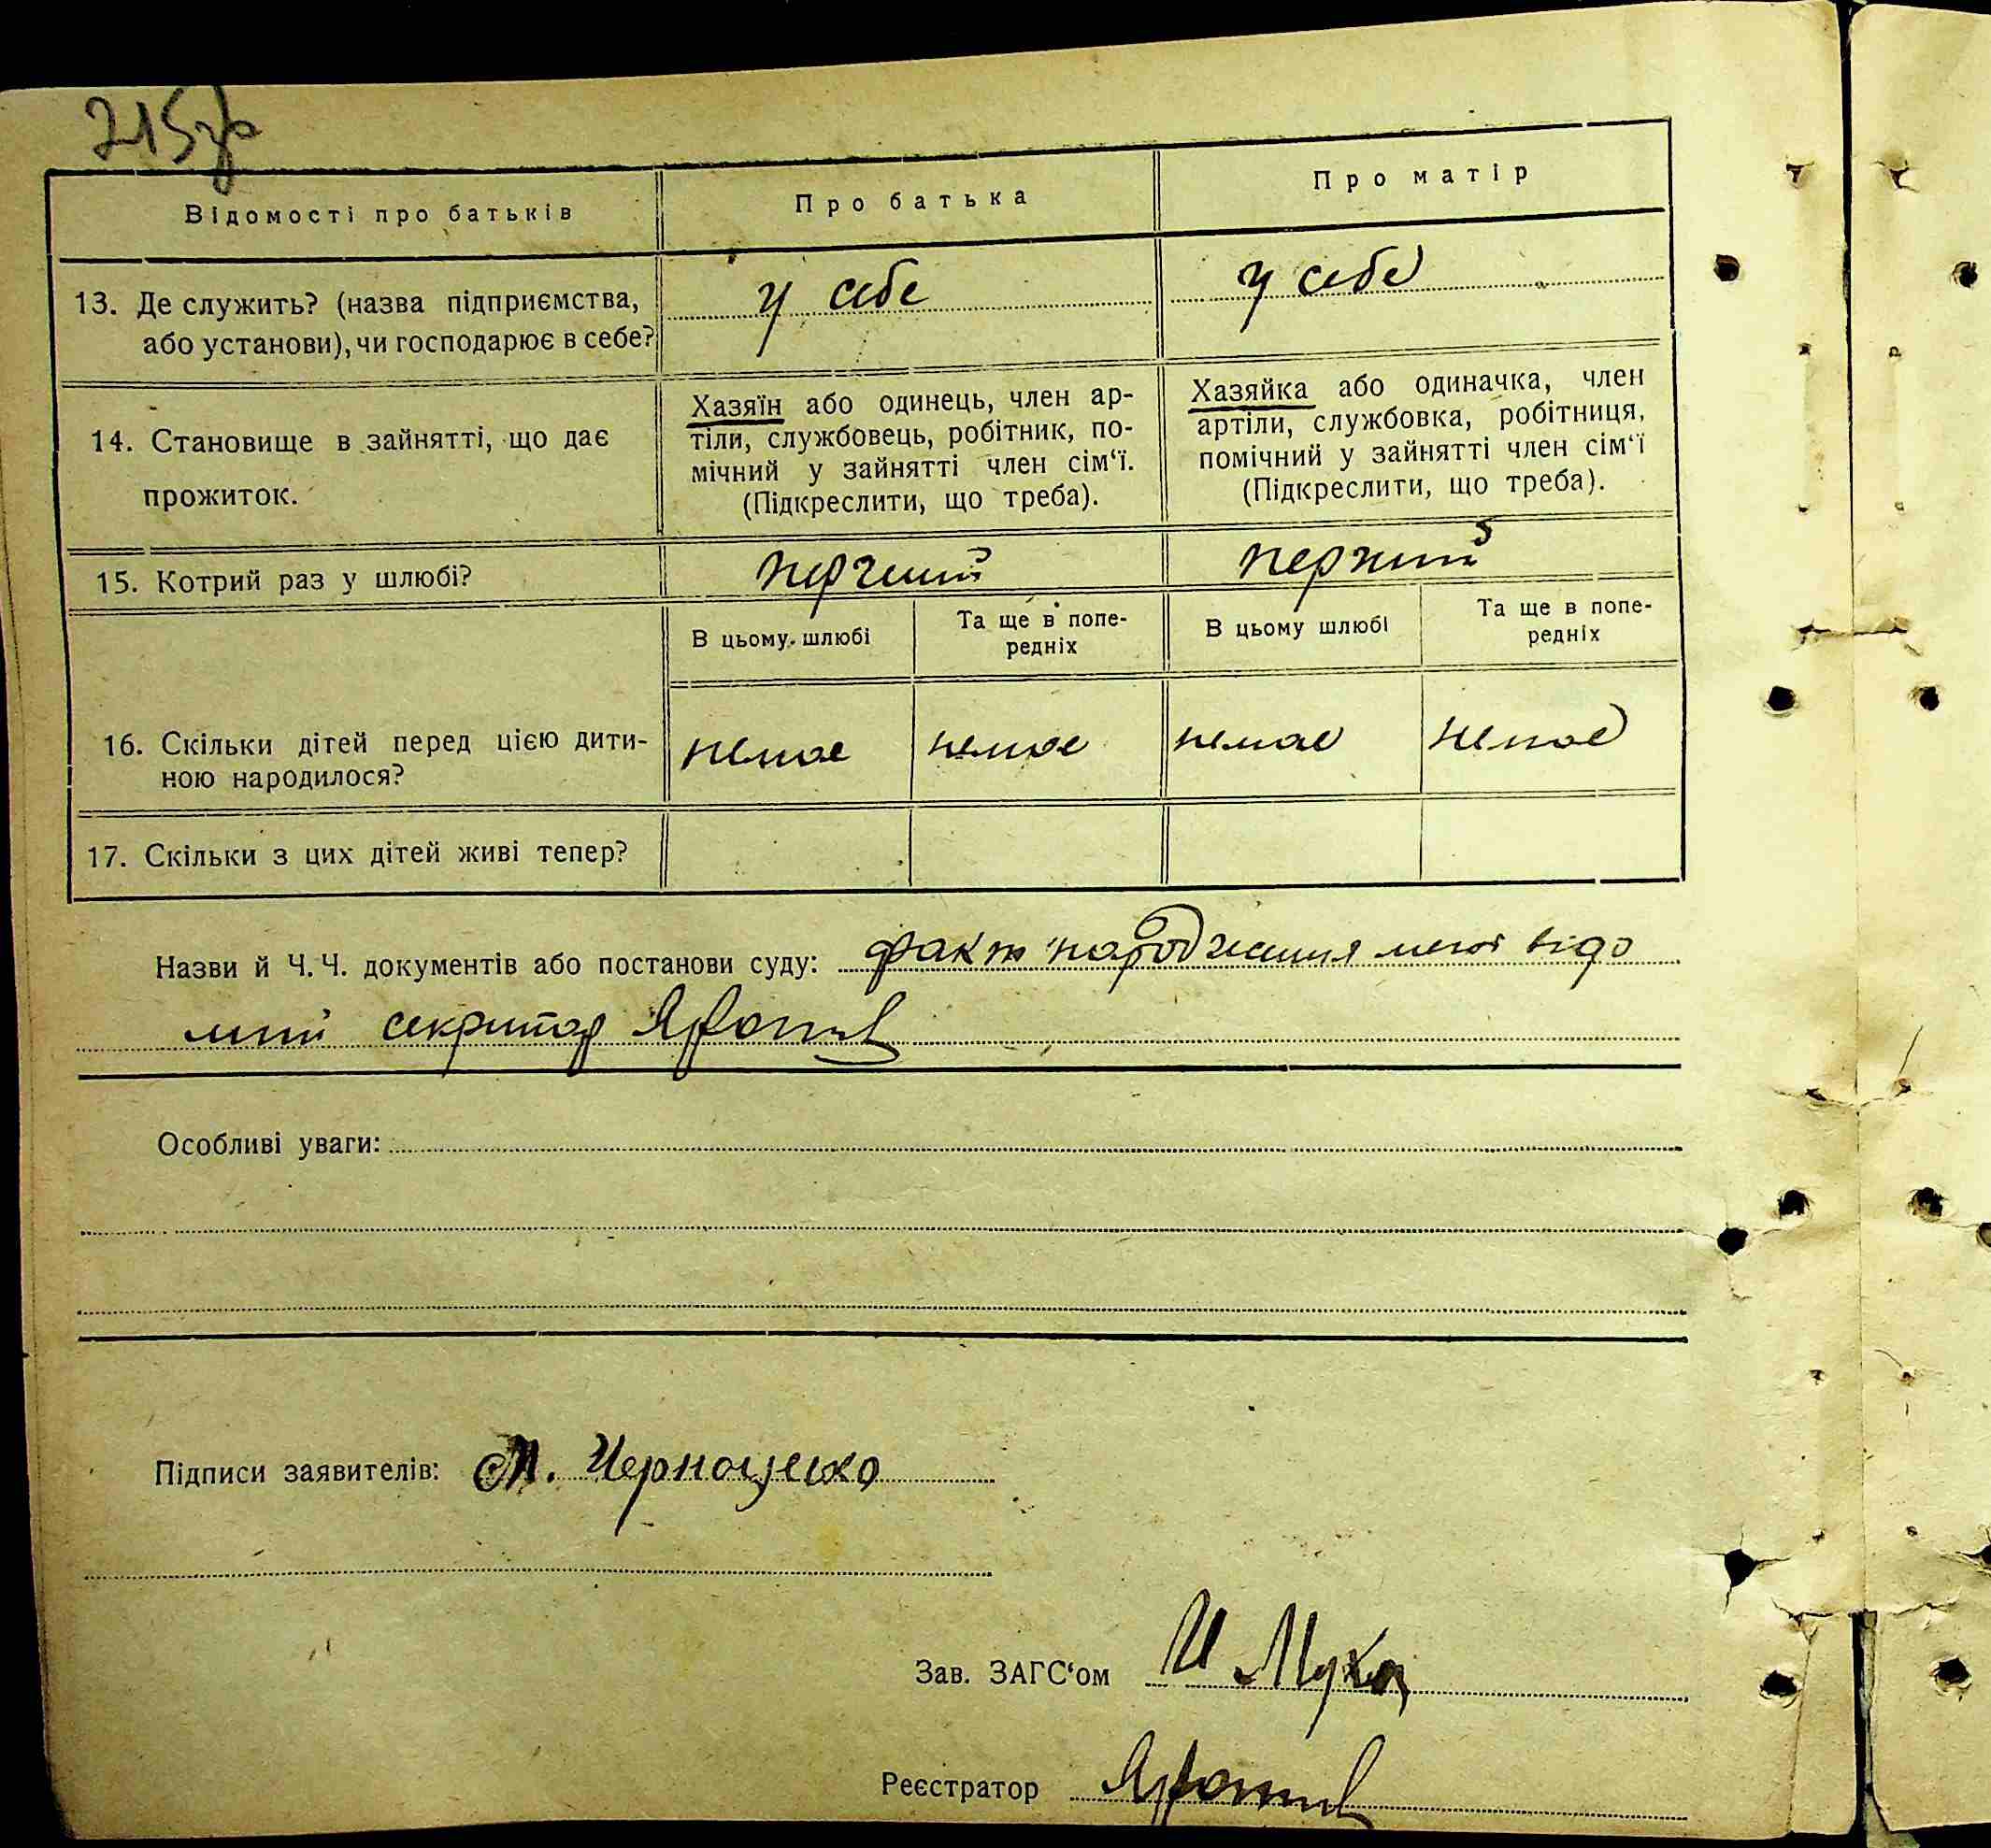 215зв
Відомості про батьків
Про батька
Про матір
13. Де служить? (назва підприємства,
або установи), чи господарює в себе?
у себе
у себе
14. Становище в зайнятті, що дає
прожиток.
Хазяїн або одинець, член ар-
тіли, службовець, робітник, по-
мічний у зайнятті член сім‘ї.
(Підкреслити, що треба).
Хазяйка або одиначка, член
артіли, службовка, робітниця,
помічний у зайнятті член сім‘ї
(Підкреслити, що треба).
15. Котрий раз у шлюбі?
перший
перший
В цьому шлюбі
Та ще в попе-
редніх
В цьому шлюбі
Та ще в попе-
редніх
16. Скільки дітей перед цією дити-
ною народилося?
немае
немае
немае
немае
17. Скільки з цих дітей живі тепер?
Назви й Ч. Ч. документів або постанови суду: факт народження мені відо
мий секритар
Особливі уваги:
Підписи заявителів: М. Черноценко
Зав. ЗАГС‘ом И Муха
Реєстратор